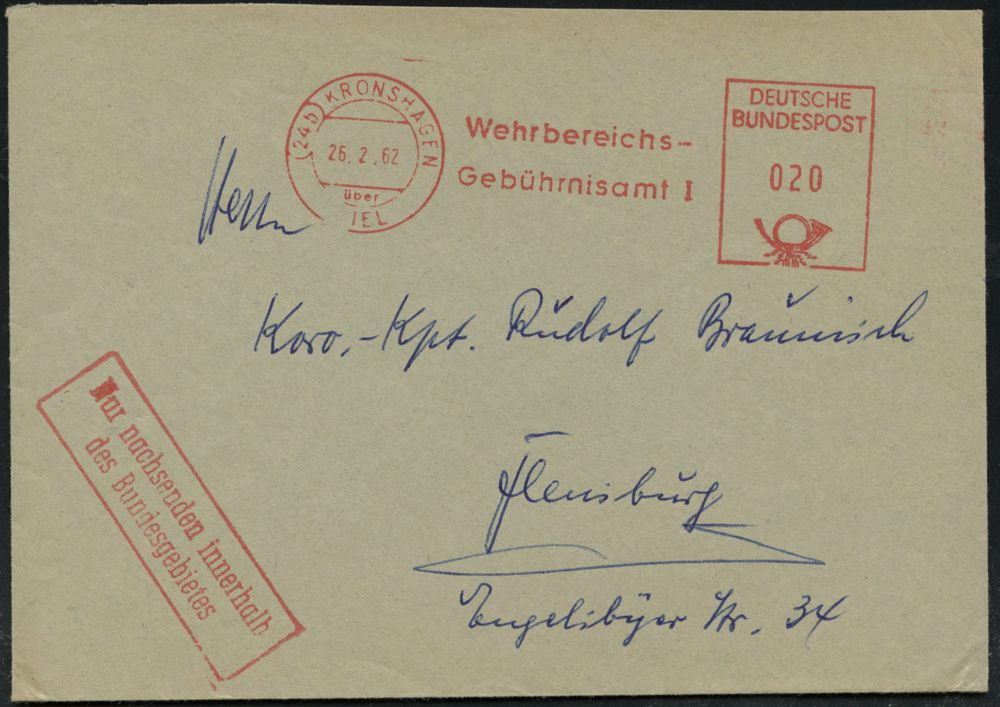 (24b) KRONSHAGEN
26. 2. 62
über
IEL
Wehrbereichs-
Gebührnisamt I
DEUTSCHE
BUNDESPOST
020
Herrn
Korv.-Kpt. Rudolf Braunisch
Flensburg
Engelsbyer Str. 34
Nur nachsenden innerhalb
des Bundesgebietes